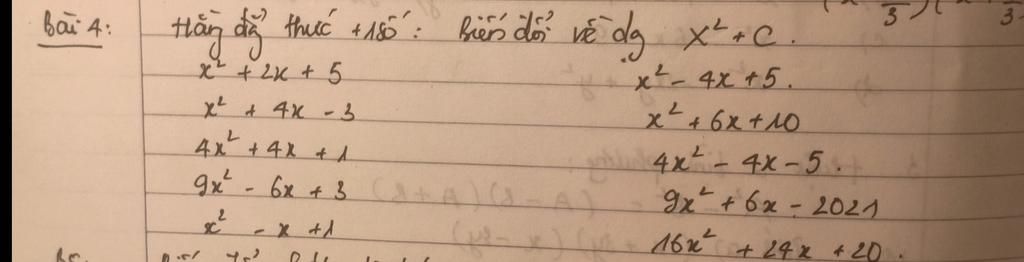 Bài 4: Hằng đẳ thức + 1 số: Biến đổi về dg X² + C.
x² + 2x + 5 x² - 4x + 5.
x² + 4x - 3 x² + 6x + 10
4x² + 4x + 1 4x² - 4x - 5.
9x² - 6x + 3 9x² + 6x - 2021
x² - x + 1 16x² + 24x + 20.